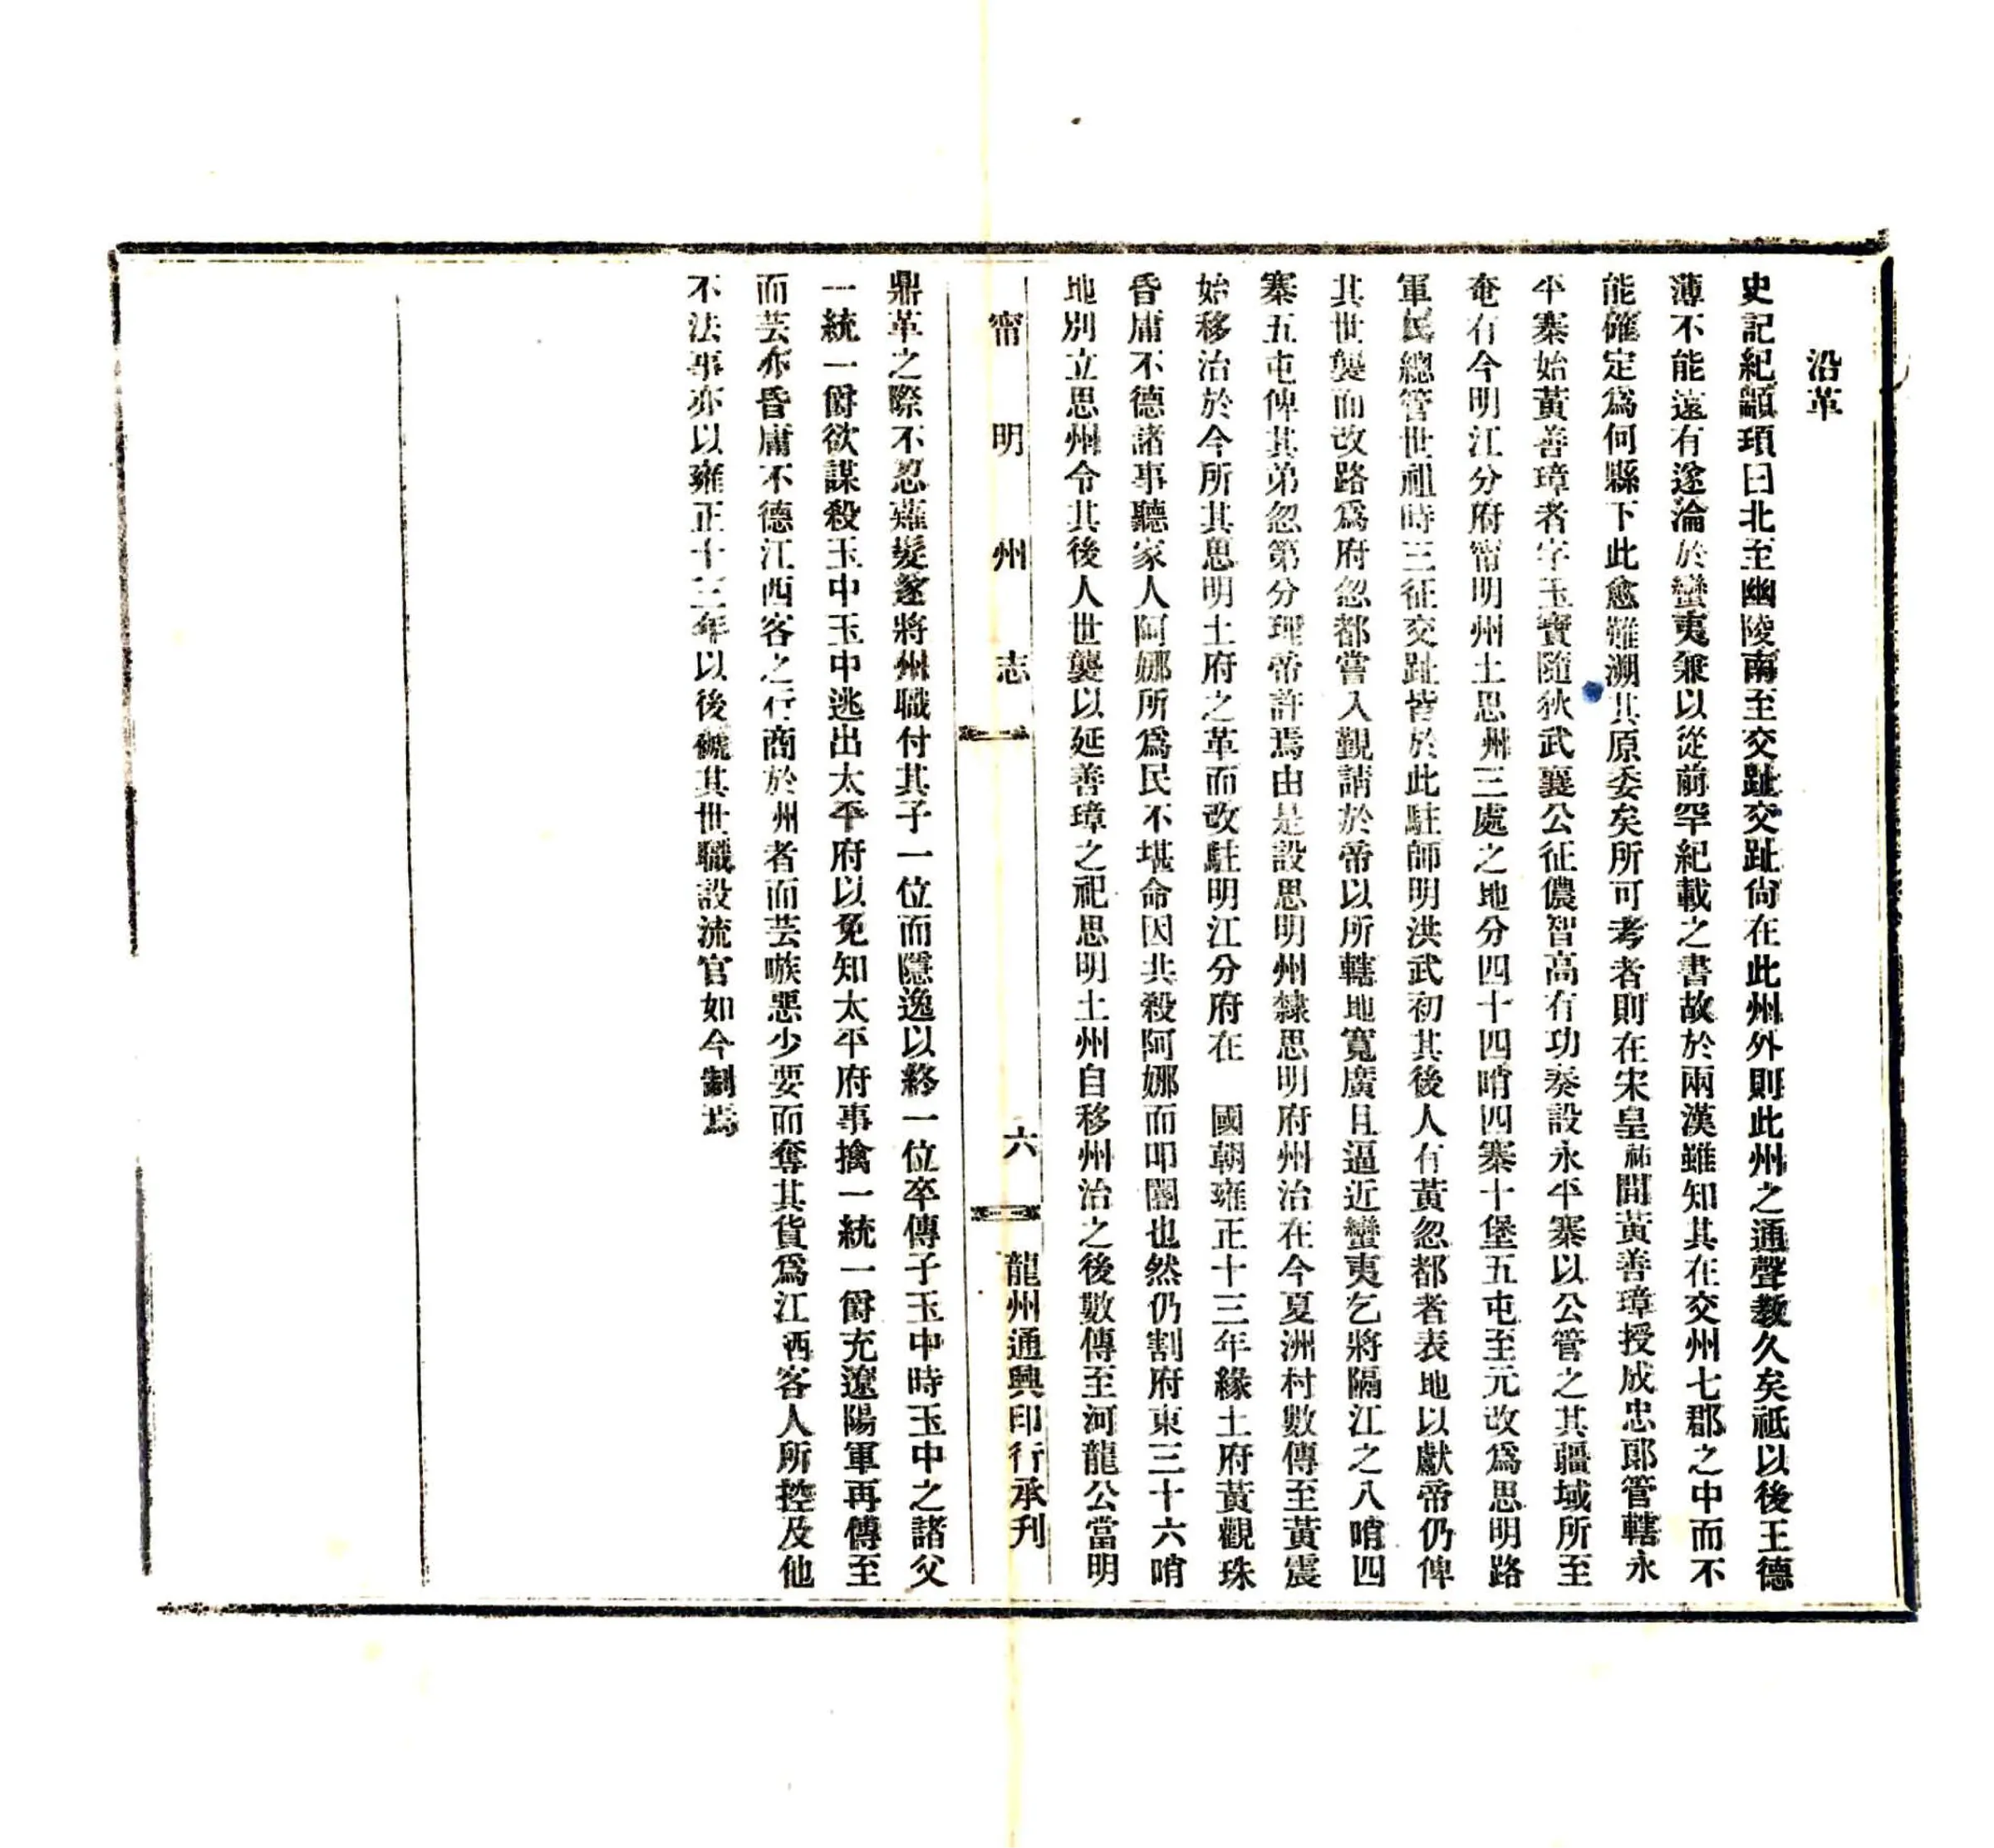 沿革
史記紀顓頊曰北至幽陵南至交趾交趾尙在此州外則此州之通聲教久矣祗以後王德
薄不能遠有遂淪於蠻夷兼以從前罕紀載之書故於兩漢雖知其在交州七郡之中而不
能確定爲何縣下此愈難溯其原委矣所可考者則在宋皇祐間黃善璋授成忠郎管轄永
平寨始黃善璋者字玉寶隨狄武襄公征儂智高有功奏設永平寨以公管之其疆域所至
奄有今明江分府甯明州土思州三處之地分四十四哨四寨十堡五屯至元改爲思明路
軍民總管世祖時三征交趾皆於此駐師明洪武初其後人有黃忽都者表地以獻帝仍俾
其世襲而改路爲府忽都嘗入覲請於帝以所轄地寬廣且逼近蠻夷乞將隔江之八哨四
寨五屯俾其弟忽第分理帝許焉由是設思明州隸思明府州治在今夏洲村數傳至黃震
始移治於今所其思明土府之革而改駐明江分府在　國朝雍正十三年緣土府黃觀珠
昏庸不德諸事聽家人阿娜所爲民不堪命因共殺阿娜而叩闇也然仍割府東三十六哨
地別立思州令其後人世襲以延善璋之祀思明土州自移州治之後數傳至河龍公當明
甯明州志
六
龍州通興印行承刋
鼎革之際不忍薙髮遂將州職付其子一位而隱逸以終一位卒傳子玉中時玉中之諸父
一統一爵欲謀殺玉中玉中逃出太平府以免知太平府事擒一統一爵充遼陽軍再傳至
而芸亦昏庸不德江西客之行商於州者而芸嗾惡少要而奪其貨爲江西客人所控及他
不法事亦以雍正十三年以後褫其世職設流官如今制焉